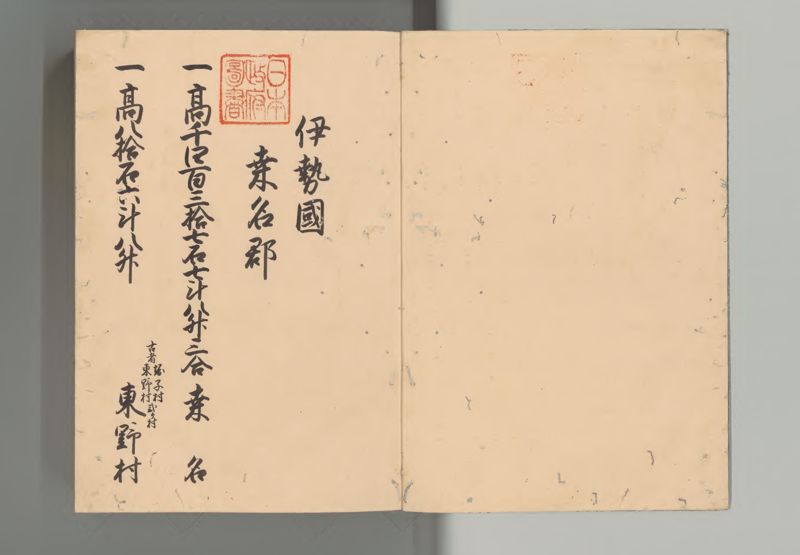 日本
政府
圖書
伊勢國
桒名郡
一高千四百三拾七石七斗八升三合 桒名
一高八拾石六斗八升
古者
子村
東野村
弐ヶ村
東野村